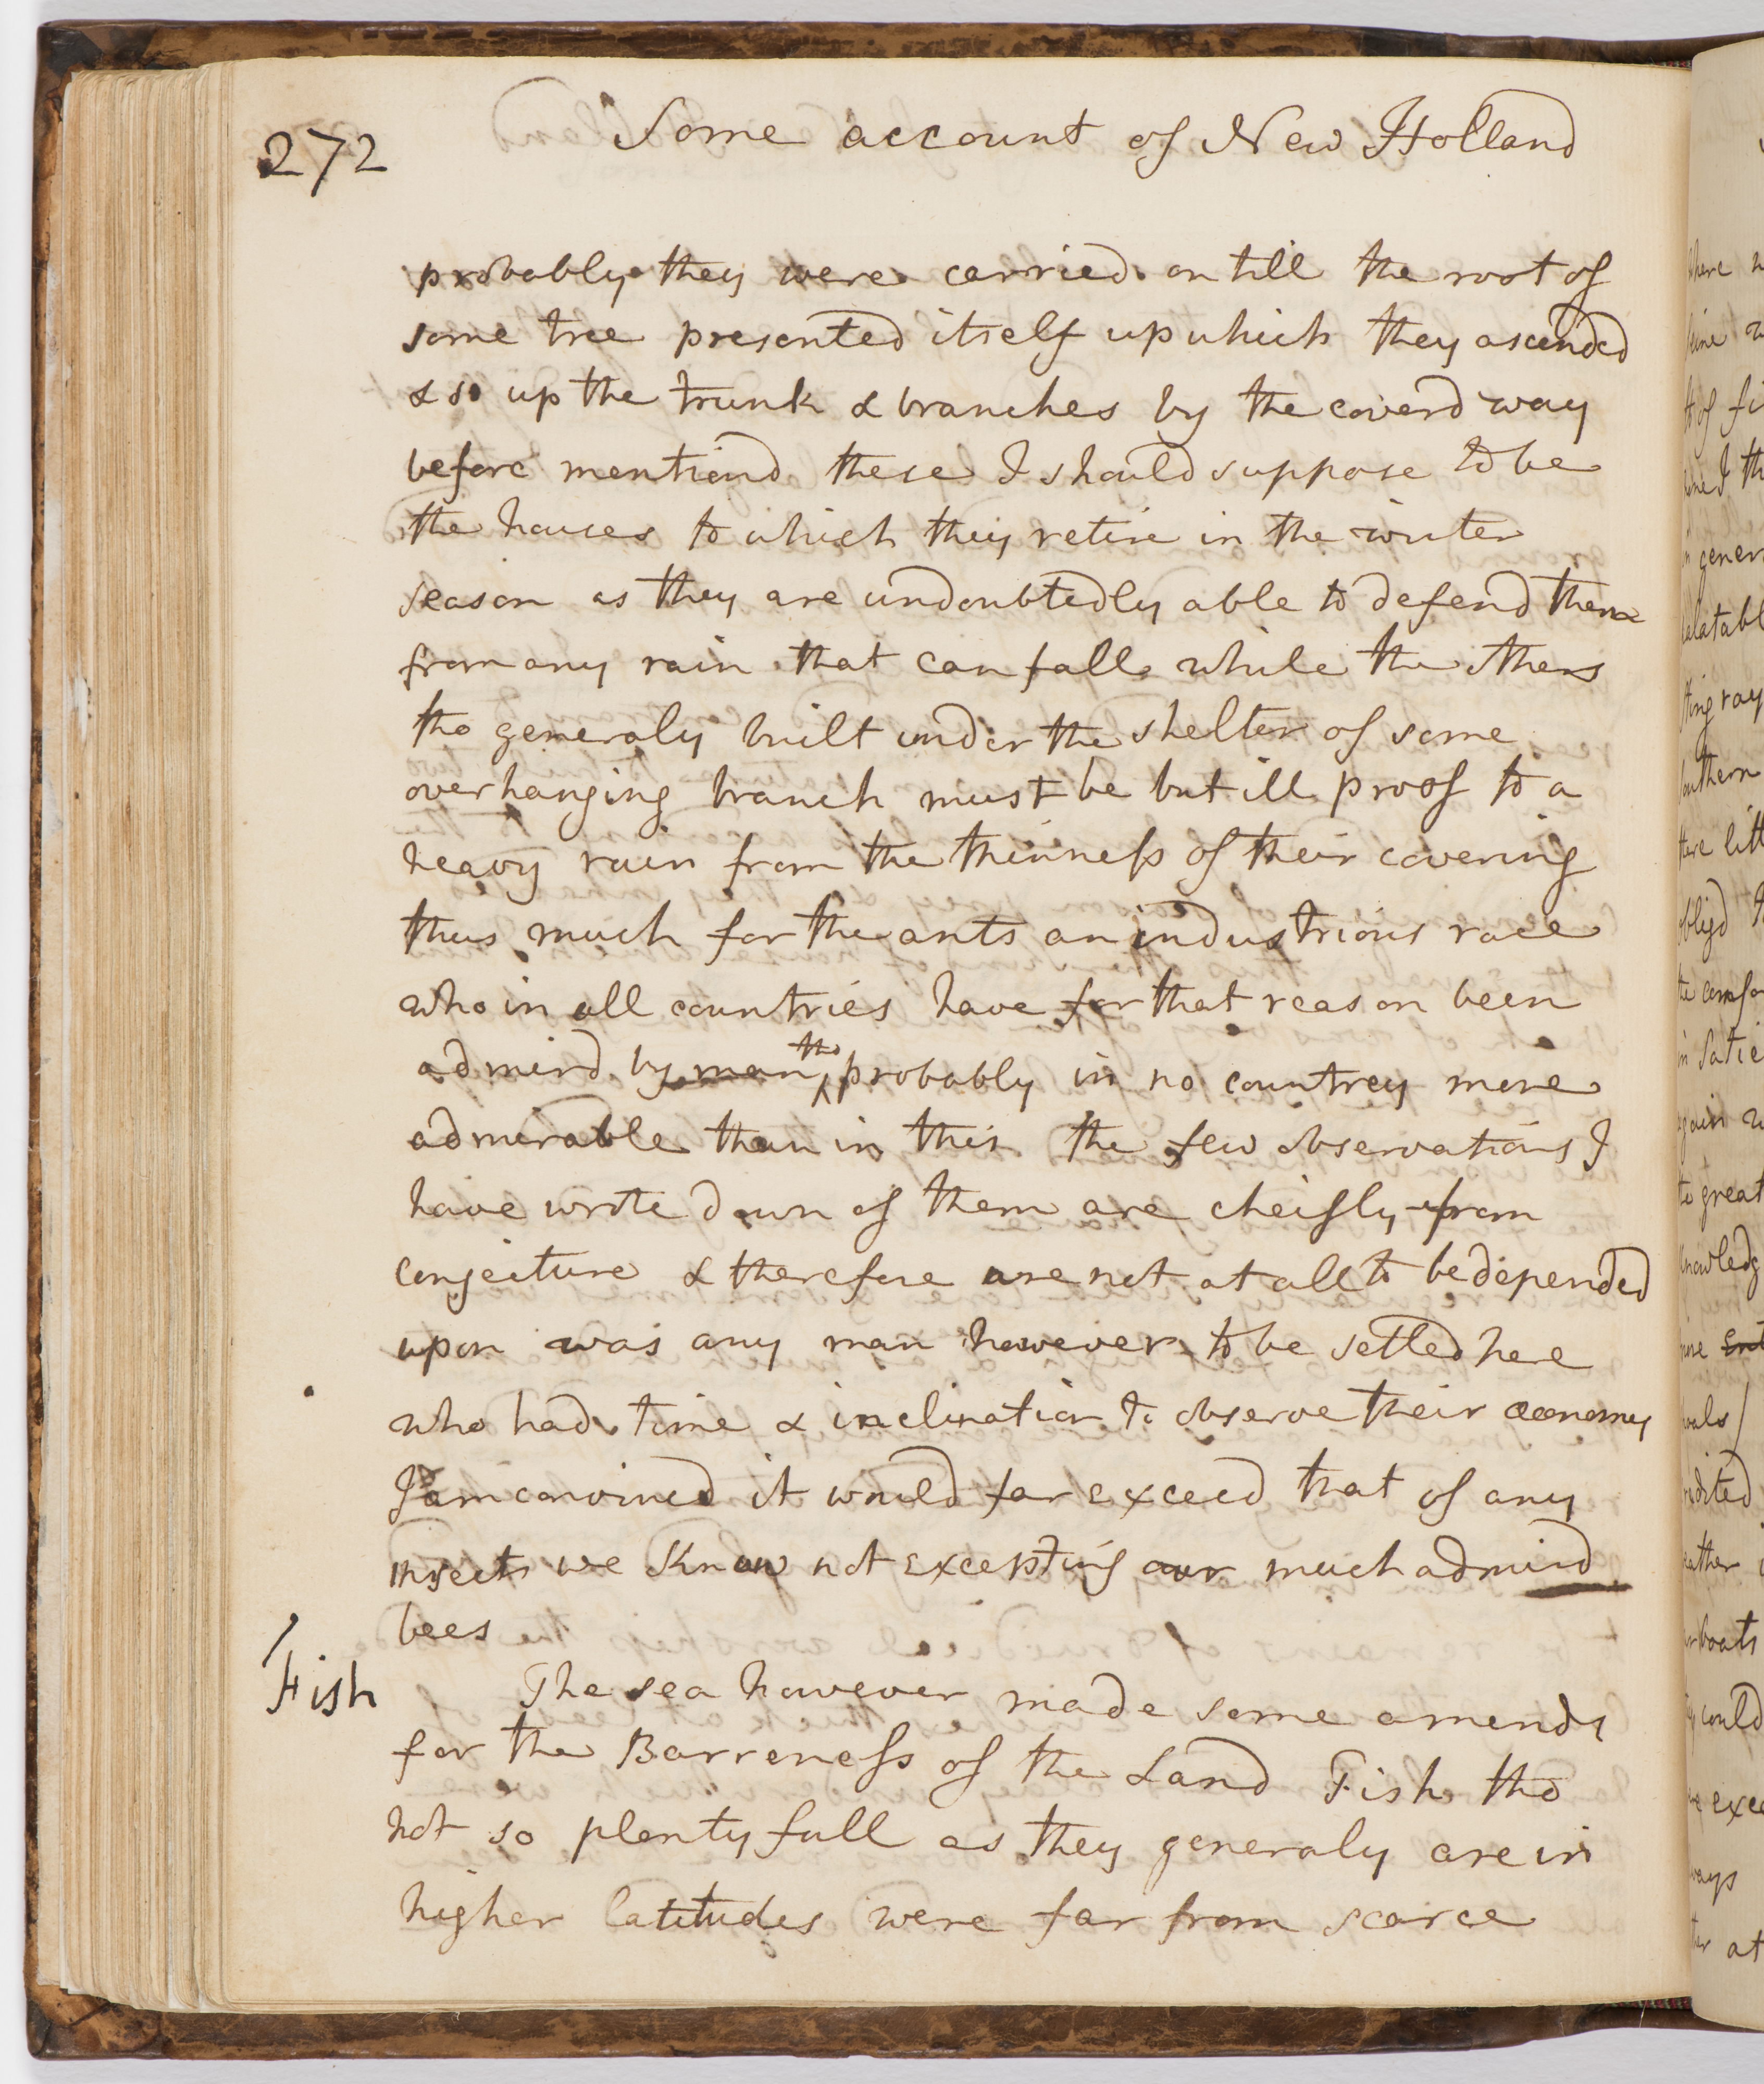 272
Some account of New Holland
probably they were carried on till the root of
some tree presented itself up which they ascended
& so up the trunk & branches by the coverd way
before mentiond these I should suppose to be
the houses to which they retire in the winter
season as they are undoubtedly able to defend them
from any rain that can fall while the others
tho generaly built under the shelter of some
overhanging branch must be but ill proof to a
heavy rain from the thinness of their covering
thus much for the ants an industrious race
who in all countries have for that reason been
admird by man tho probably in no countrey more
admirable than in this the few observations I
have wrote down of them are cheifly from
conjecture & therefore are not at all to be depended
upon was any man however to be setled here
who had time & inclination to observe their œconomy
I am convincd it would far exceed that of any
insects we know not excepting our much admird
bees
Fish
The sea however made some amends
for the Barreness of the Land Fish tho
not so plentyfull as they generaly are in
higher latitudes were far from scarce